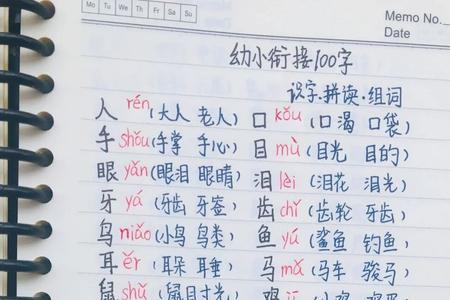 Mo Tu We Th Fr Sa Su
Memo No.
Date
幼小衔接100字
识字·拼读·组词
人 rén (大人 老人) 口 kǒu (口渴 口袋)
手 shǒu (手掌 手心) 目 mù (目光 目的)
眼 yǎn (眼泪 眼睛) 泪 lèi (泪花 泪光)
牙 yá (牙齿 牙签) 齿 chǐ (齿轮 牙齿)
鸟 niǎo (小鸟 鸟类) 鱼 yú (鲨鱼 钓鱼)
耳 ěr (耳朵 耳垂) 马 mǎ (马车 骏马)
鼠 shǔ (鼠目寸光)